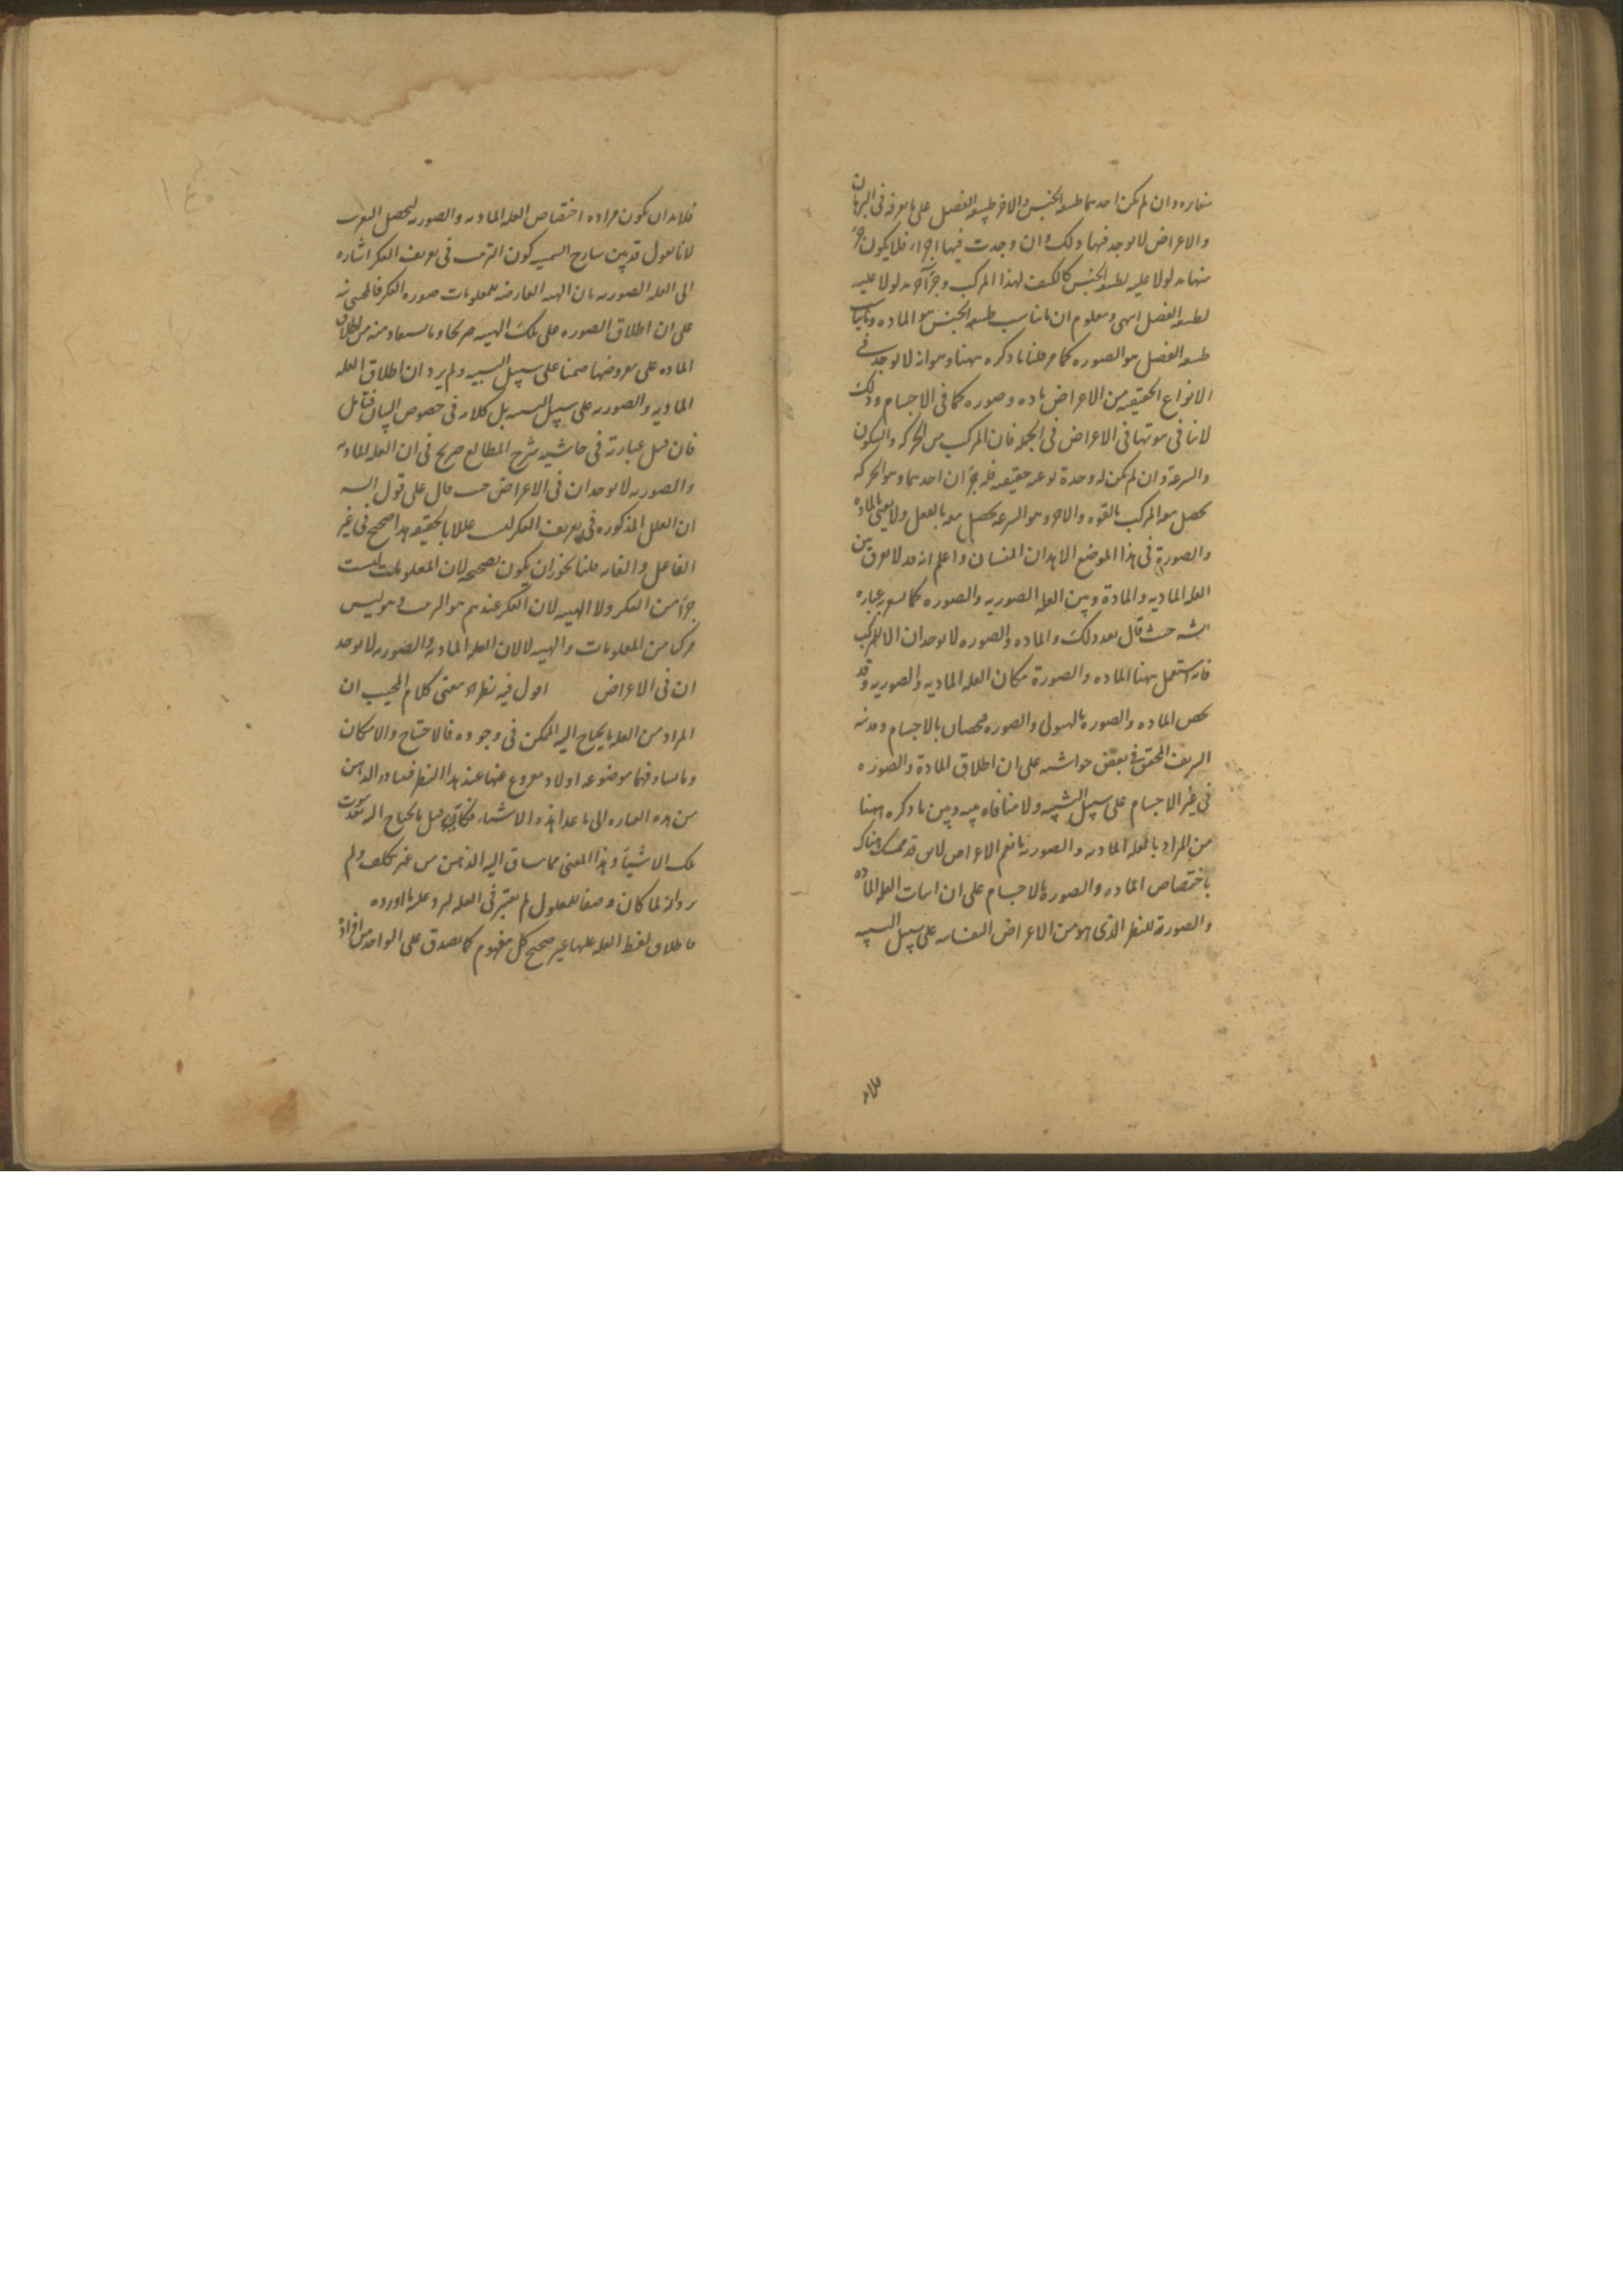 متغايرة وان لم يكن احدهما طبيعة الجنس والاخر طبيعة الفصل على ما عرف فى البرهان
والاعراض لا يوجد فيها ذلك وان وجدت فيها اجزاء فلا يكون جزء
منها مدلولا عليه لطبيعة الجنس كالكيف لهذا المركب وجزء آخر مدلولا عليه
لطبيعة الفصل انتهى ومعلوم ان ما يناسب طبيعة الجنس هو المادة وما يناسب
طبيعة الفصل هو الصورة كما مر قلنا ما ذكره ههنا وهو انه لا يوجد فى
الانواع الحقيقية من الاعراض مادة وصورة كما فى الاجسام وذلك
لا ينافى ثبوتها فى الاعراض فى الجملة فان المركب من الحركة والسكون
والسرعة وان لم يكن له وحدة نوعية حقيقية فله جزءان احدهما وهو الحركة
يحصل معه المركب بالقوة والاخر وهو السرعة يحصل معه بالفعل ولا يعنى بالمادة
والصورة فى هذا الموضع الا هذان المعنيان واعلم انه قد لا يفرق بين
العلة المادية والمادة وبين العلة الصورية والصورة كما يشعر به عبارة
الش حيث قال بعد ذلك والمادة والصورة لا يوجدان الا للمركب
فانه استعمل ههنا المادة والصورة مكان العلة المادية والصورية وقد
يخص المادة والصورة بالهيولى والصورة مختصان بالاجسام
الشريف المحقق فى بعض حواشيه على ان اطلاق المادة والصورة
فى غير الاجسام على سبيل التشبيه ولا منافاة بينه وبين ما ذكره ههنا
من المراد بالعلة المادية والصورية ما يعم الاعراض لانه قد تمسك هناك
باختصاص المادة والصورة بالاجسام على ان اثبات العلة المادة
والصورة للنظر الذى هو من الاعراض النفسانية على سبيل التشبيه
فلابد
فلابد ان يكون مراده اختصاص العلة المادية والصورية ليحصل التقريب
لانا نقول قد بين شارح الشمسية كون الترتيب فى تعريف الفكر اشارة
الى العلة الصورية بان الهيئة العارضة للمعلومات صورة الفكر فالمحشى نبه
على ان اطلاق الصورة على تلك الهيئة صريحا وما يستفاد منه من اطلاق
المادة على معروضها ضمنا على سبيل التشبيه ولم يرد ان اطلاق العلة
المادية والصورية على سبيل التشبيه بل كلامه فى خصوص البيان فتأمل
فان قيل عبارته فى حاشية شرح المطالع صريح فى ان العلة المادية
والصورية لا يوجدان فى الاعراض حيث قال على قول الش
ان العلل المذكورة فى تعريف الفكر ليست عللا بالحقيقة هذا صحيح فى غير
الفاعل والغاية قلنا يجوز ان يكون تصحيحه لان المعلومات ليست
جزءا من الفكر ولا الهيئة لان الفكر عندهم هو الترتيب وهو ليس
مركبا من المعلومات والهيئة لا لان العلة المادية والصورية لا يوجد
ان فى الاعراض اقول فيه نظر اذ معنى كلام المجيب ان
المراد من العلة ما يحتاج اليه الممكن فى وجوده فالاحتياج والامكان
وما يساوقهما موضوعة اولا ومفروغ عنها عند هذا النظر فتبادر الذهن
من هذه العبارة الى ما عدا هذه الاشياء فكأنه قيل ما يحتاج اليه بعد ثبوت
تلك الاشياء وهذا المعنى مما يساق اليه الذهن من غير تكلف ولم
يرد انه لما كان وصفا للمعلول لم يعتبر فى العلة ليرد عليه ما اورده
فاطلاق لفظ العلة عليها غير صحيح كل مفهوم كما يصدق على الواحد من افراده